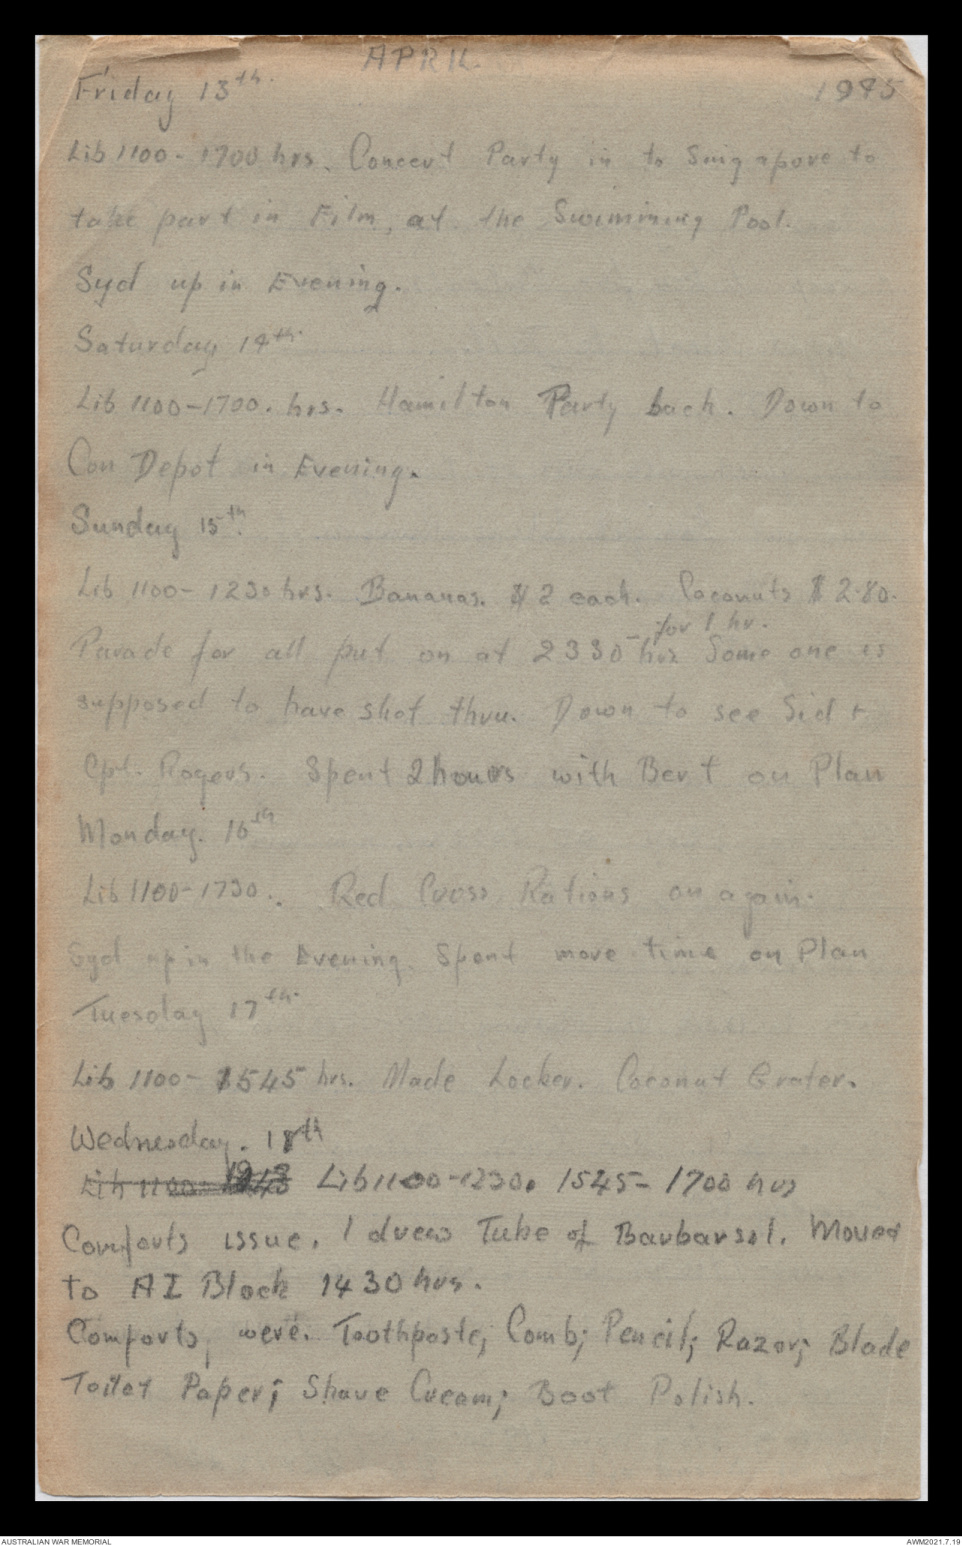 APRIL
Friday 13th. 1945
Lib 1100 - 1700 hrs. Concert Party in to Singapore to
take part in Film, at the Swimming Pool.
Syd up in Evening.
Saturday 14th.
Lib 1100-1700. hrs. Hamilton Party back. Down to
Con Depot in Evening.
Sunday 15th.
Lib 1100 - 1230 hrs. Bananas. $2 each. Coconuts $2.80.
for 1 hr.
Parade for all put on at 2330 - hrs Some one is
supposed to have shot thru. Down to see Sid +
Cpl. Rogers. Spent 2 hours with Bert on Plan
Monday. 16th
Lib 1100-1730. Red Cross Rations on again.
Syd up in the Evening. Spent more time on Plan
Tuesday 17th.
Lib 1100 - 1545 hrs. Made Locker. Coconut Grater.
Wednesday. 18th
Lib 1100 - Lib 1100-1230. 1545 - 1700 hrs
Comforts issue. I drew Tube of Barbarsol. Moved
to AI Block 1430 hrs.
Comforts, were. Toothpaste; Comb; Pencil; Razor; Blade
Toilet Paper; Shave Cream; Boot Polish.
AUSTRALIAN WAR MEMORIAL AWM2021.7.19